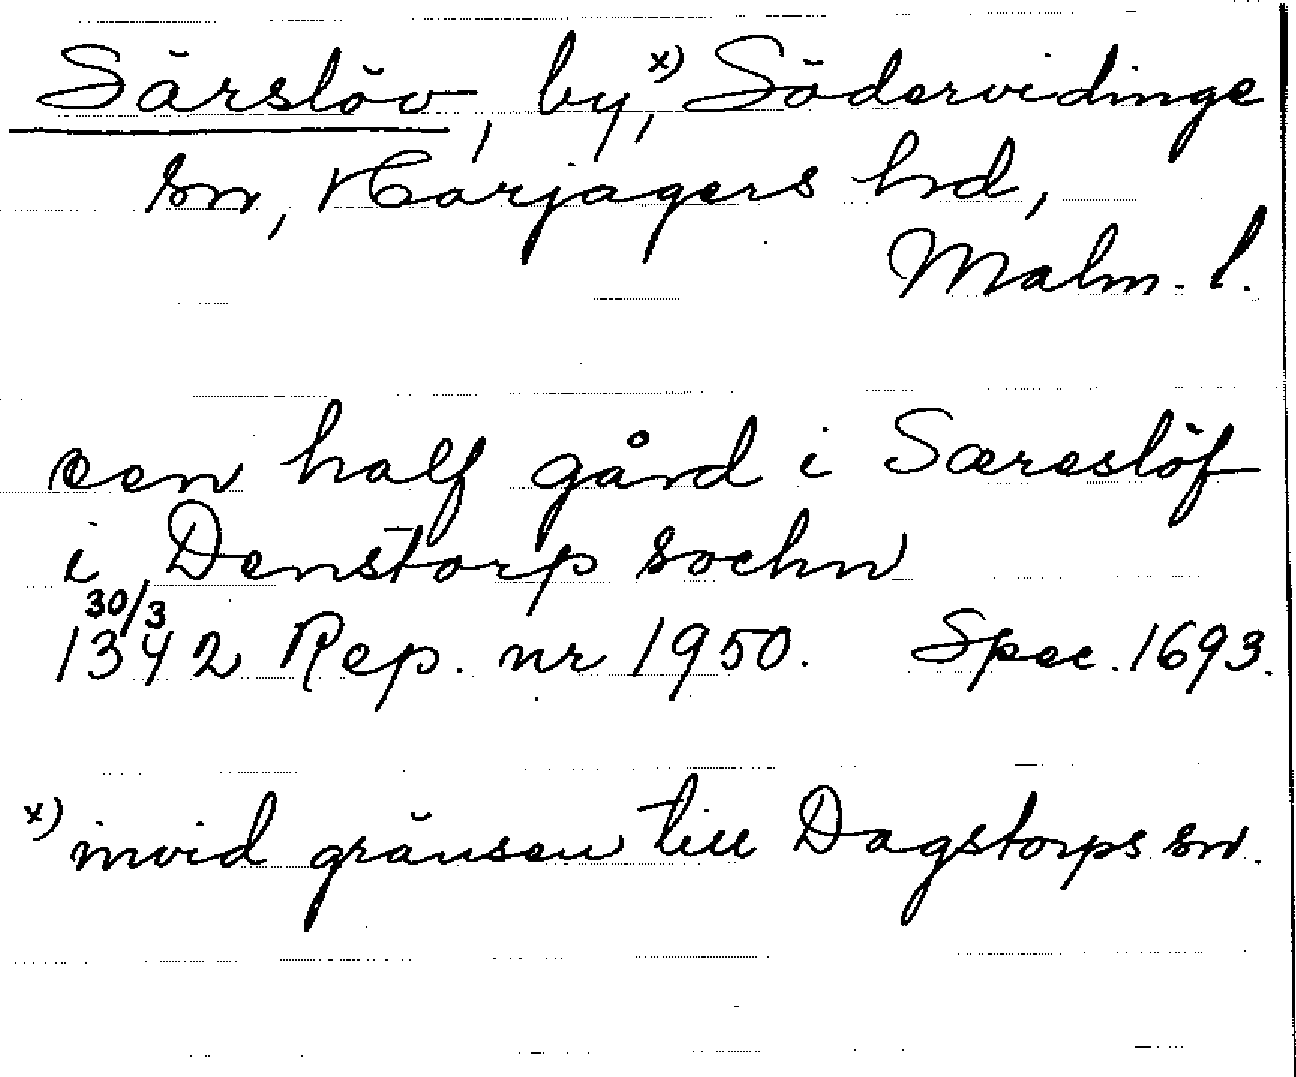 Särslöv, by,x) Södervidinge
sn, Harjagers hd,
Malm. l.
een half gård i Særeslöf
i Denstorp sochn
30/3
1342 Rep. nr 1950. Spec. 1693.
x) invid gränsen till Dagstorps sn.